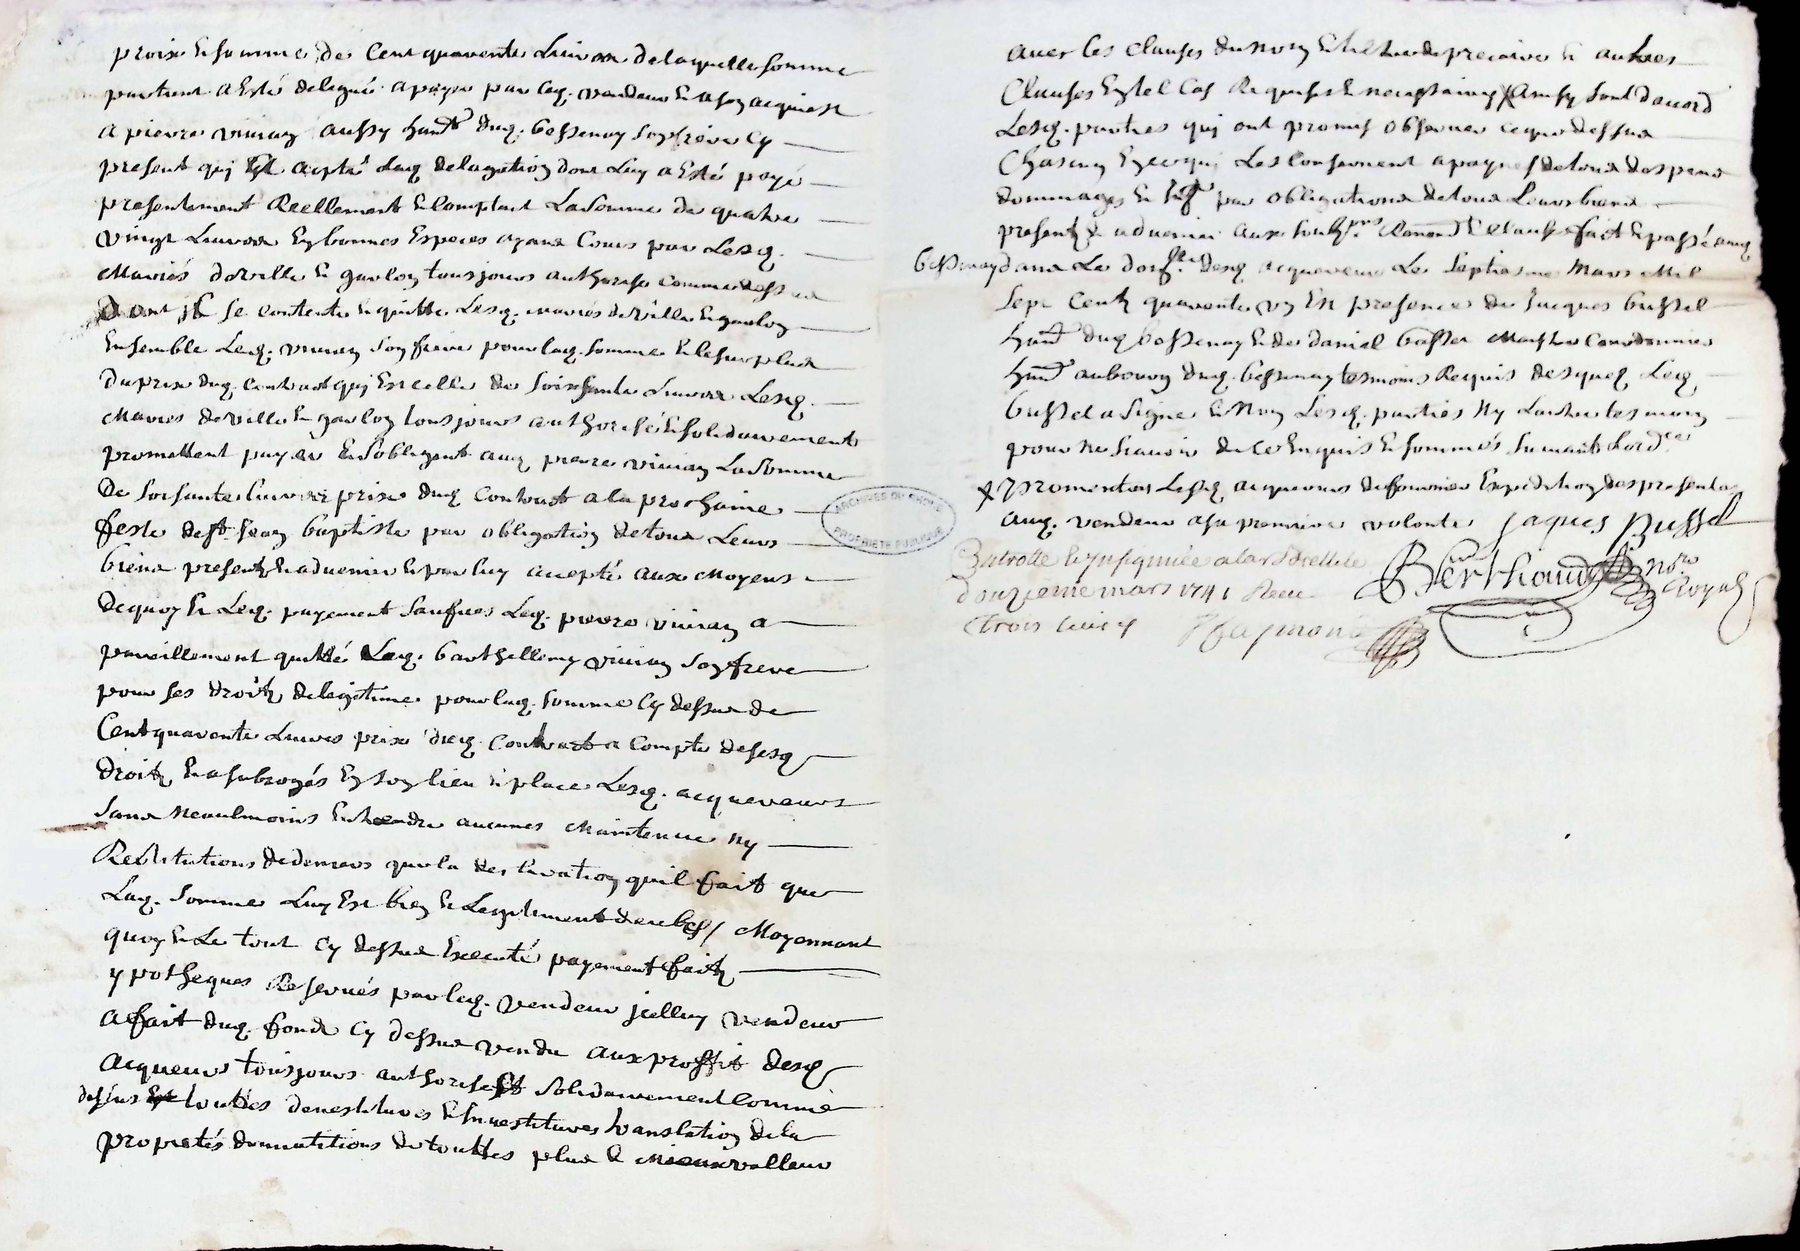 prix & somme de Cent quarente Livres de laquelle somme
partient a Esté delegué a payer par leq. vendeur
a pierre viviay aussy han̄t dud. bessenay soy frere Cy
present quj acepté lad. delegatioy dont Luy a Esté payé
presentement Reellement & Comptant La somme de quatre
vingt Livres Ey bonnes Especes ayant Cours par Lesq.
Mariés deville & gauloy tousjours authorisée comme dessus
dont jl se contente & quitte Lesq. mariés deville & gauloy
Ensemble Leq. viviay soy frere pour laq. somme & le surplus
du prix duq. Contract quj Est celle de soixante Livres Lesq.
Mariés deville & gauloy tousjours authorisée & solidairement
promettent payer & s'obligent auq. pierre viviay La somme
De soixante livres prix duq. Contract a la prochaine
feste de st. Jeay baptiste par obligatioy de tous Leurs
biens presentz & advenir & par luy acepté aux Moyens
de quoy & Leq. payement sauf Leq. pierre viviay a
pareillement quitté Leq. barthellemy viviay soy frere
pour ses droitz de legitime pour laq. somme Cy dessus de
Cent quarente Livres prix dueq. Contract a Compte desesq.
droitz & a subrogés Ey soy lieu & place Lesq. acquereurs
sans neaulmoins Entendre aucunes Maintenue ny
Restitutions de deniers que la declaratioy quil fait que
Laq. somme Luy Est biey & Legitimement deub / Moyennant
quoy & Le tout Cy dessus Executé payement faitz
ypotheques Reservés par leq. vendeur jcelluy vendeur
a fait duq. fondz Cy dessus vendu aux proffit desq.
acquereurs tousjours authorisée & solidairement Comme
dessus touttes devestitures & Investitures translatioy de la
proprietés de touttes plus & Mieux valleur
avec les clauses du nom & tiltre de precaire & autres
Clauses Ey tel Cas Requises & necessaires X Ainsy sont d'acord
Lesq. parties quj ont promis observer ce que dessus
Chascuy Ey ce quj Les Consernent a payne de tous despens
dommages & par obligations de tous Leurs biens
presentz & advenir aux & Clause fait & passé auq.
bessenay dans Le desq. acquereurs Le septiesme Mars Mil
sept Centz quarente vy Est presence de Jacques bussel
han̄t duq. bessenay & de daniel basset Maistre Cordonnier
han̄t au bourg duq. bessenay tesmoins Requis desquelq. Leq.
bussel a signé & Noy Lesq. parties Ny L'autre tesmoiy
pour ne scavoir de ce Enquis & sommés suivant L'ord.ce
X Promettent Lesq. acquereurs de fournir Expeditioy des presentes
auq. vendeur a sa premiere volonte Jaques Bussel
Controllé & Insignuée a larbrelle le Berthaud nore
douzieme mars 1741 Receu Royal
trois Livres